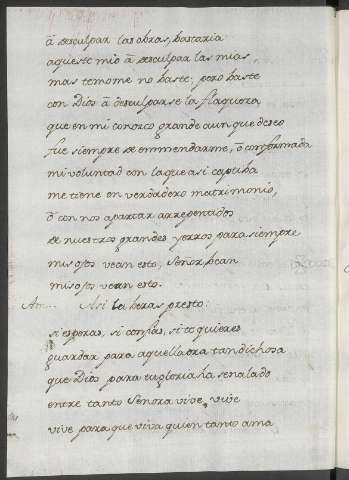 à desculpar las obras, bastaria
aqueste mio à desculpar las mias,
mas temome no baste; pero baste
con Dios à desculparse la flaqueza
que en mi conozco grande aunque deseo
fue siempre de emmendarme, ò conformada
mi voluntad con la que asi captiba
me tiene en verdadero matrimonio,
ò con nos apartar arrepentados
de nuestros grandes yerros para siempre
mis ojos vean esto, Señor vean
mis ojos vean esto.
Am. Asi la heras presto:
si esperas, si confias, si te quieres
guardar para aquella ora tan dichosa
que Dios para tu gloria ha señalado
entre tanto Señora vive, vive
vive para que viva quien tanto ama